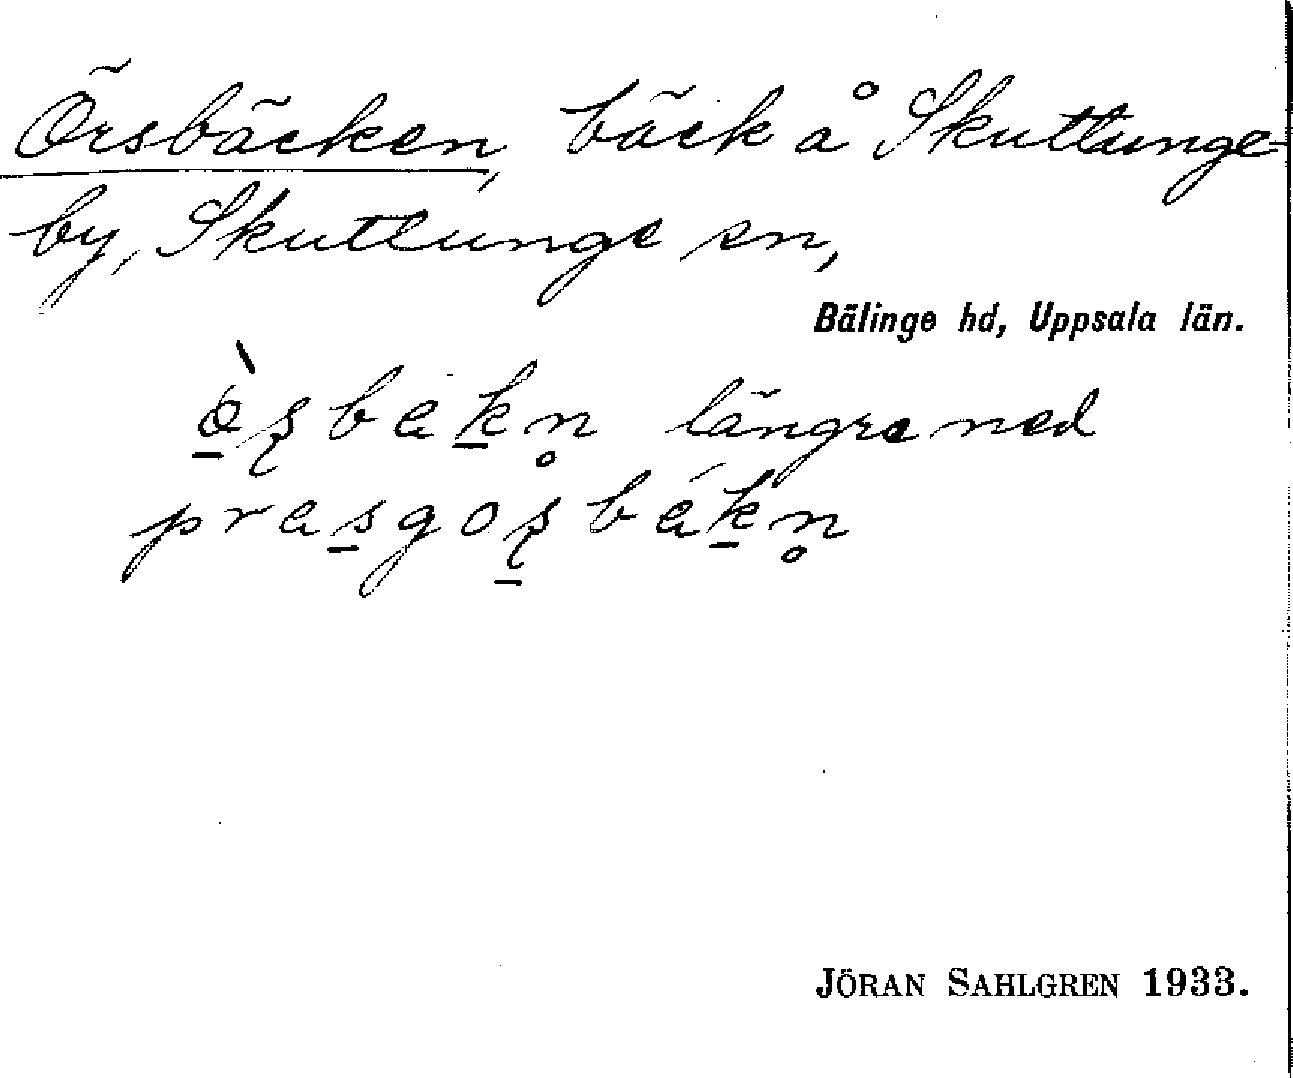 Örsbäcken, bäck å Skuttunge-
by, Skuttunge sn,
Bälinge hd, Uppsala län.
längre ned
JÖRAN SAHLGREN 1933.